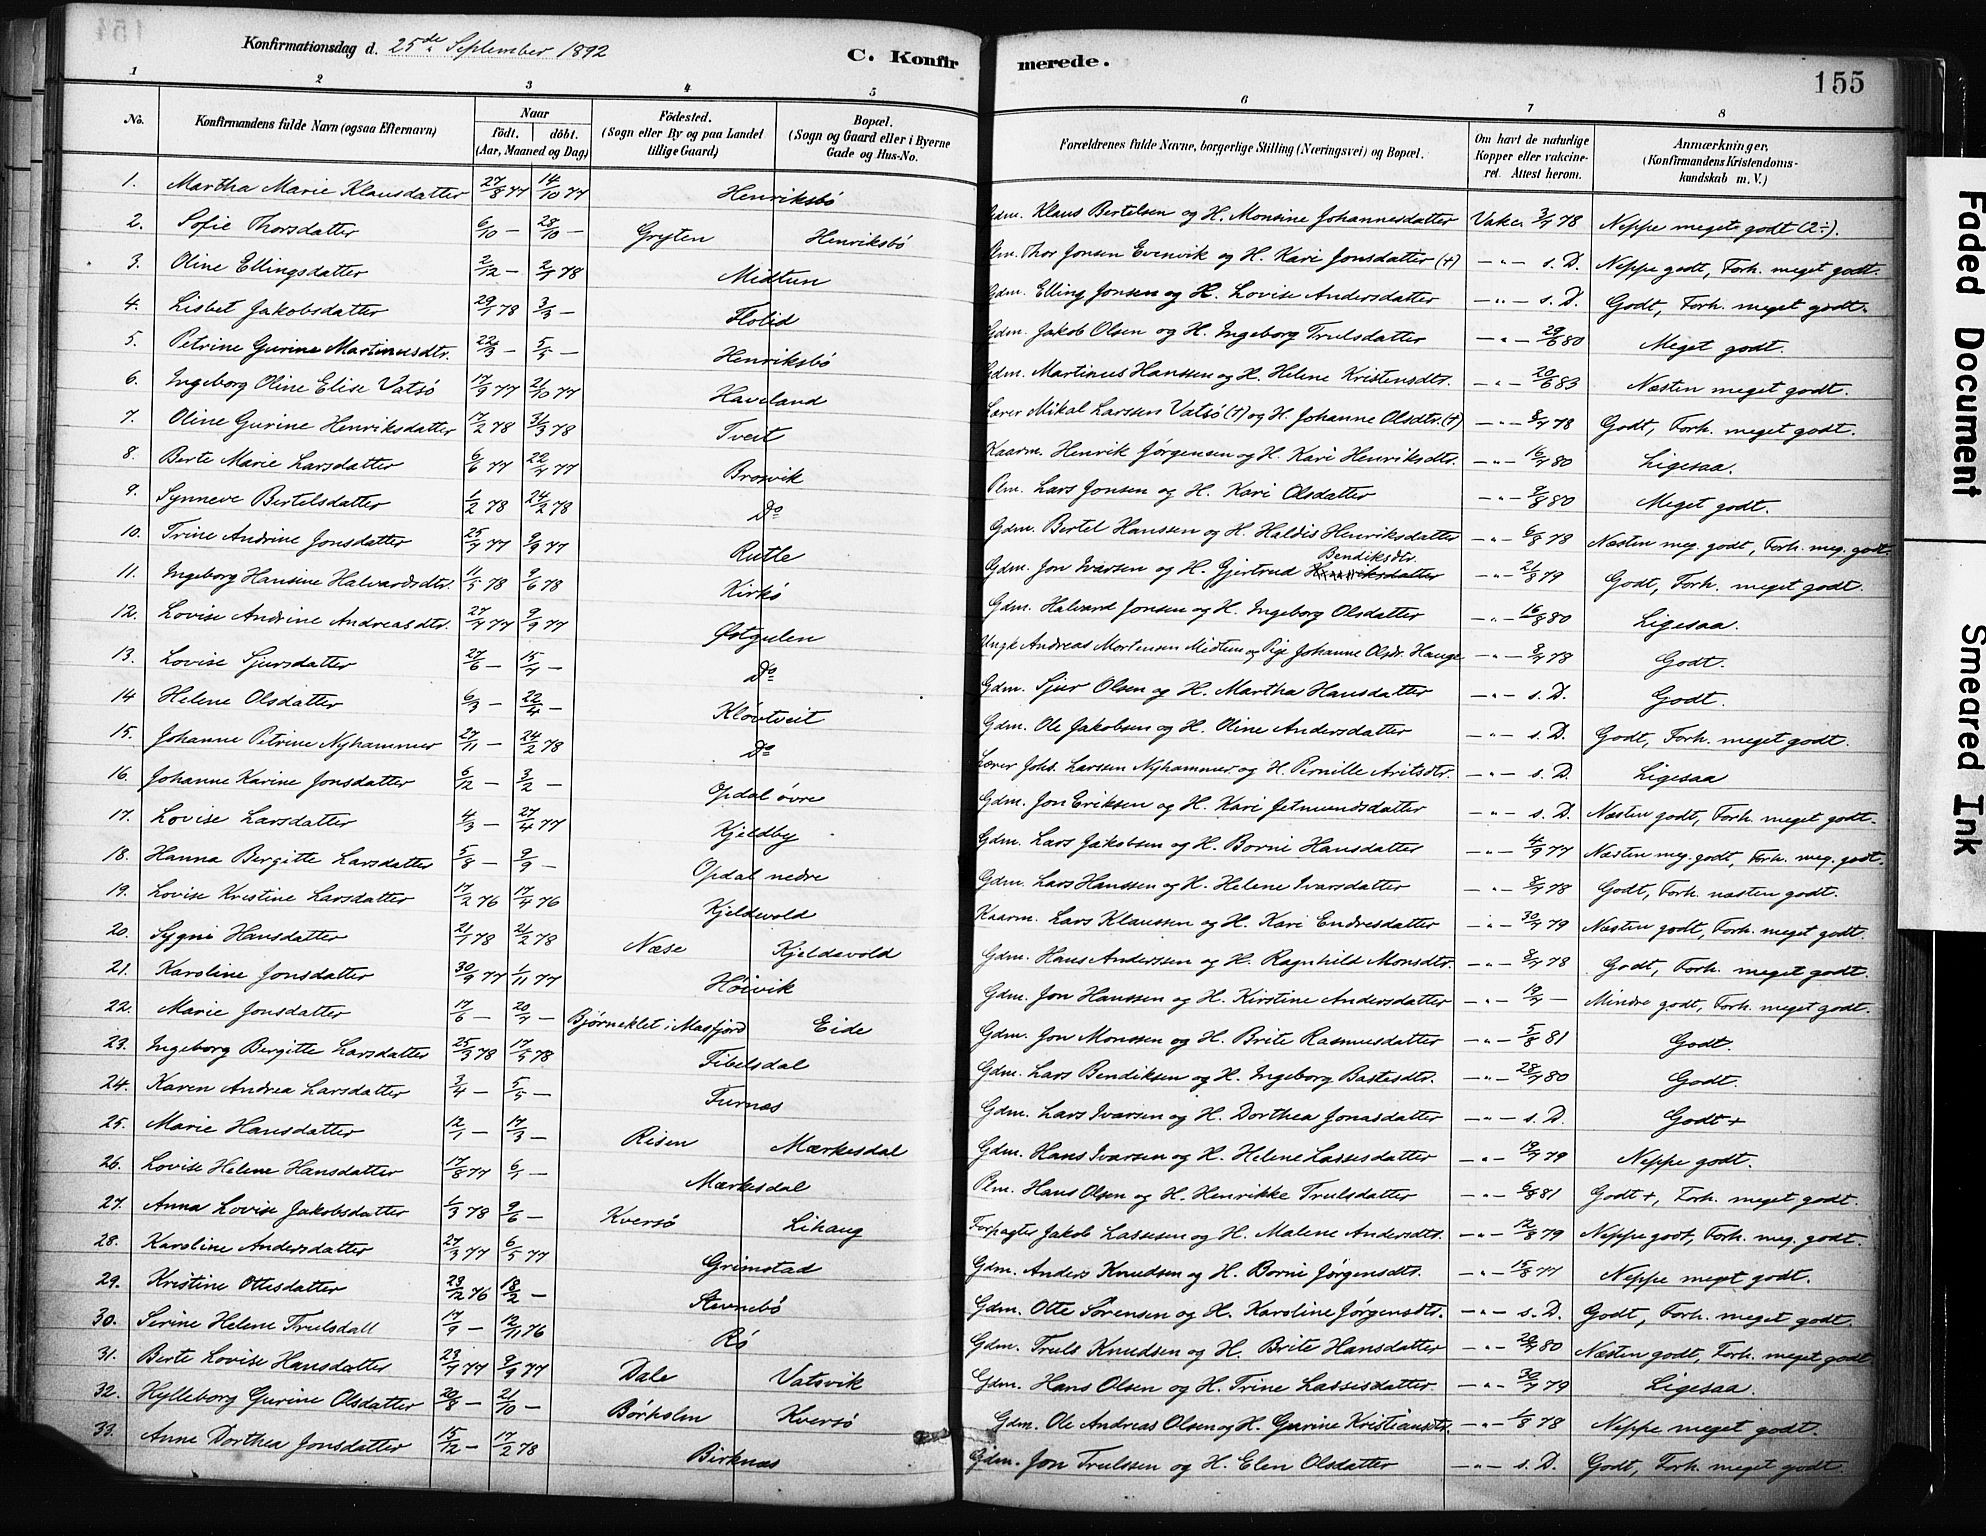 154
Konfirmationsdag d. 25de September 1892
C. Konfirmerede.
155
1 2 3 4 5 6 7 8
No.
Konfirmandens fulde Navn (ogsaa Efternavn)
Naar
födt. döbt.
(Aar, Maaned og Dag)
Födested.
(Sogn eller By og paa Landet tillige Gaard)
Bopæl.
(Sogn og Gaard eller i Byerne Gade og Hus-No.
Forældrenes fulde Navne, borgerlige Stilling (Næringsvei) og Bopæl.
Om havt de naturlige Kopper eller vakcineret. Attest herom.
Anmærkninger.
(Konfirmandens Kristendomskundskab m. V.)
1. Martha Marie Klausdatter 27/8 77 14/10 77 Henriksbö Gdm. Klaus Bertelsen og H. Monsine Johannesdatter Vakc. 3/7 78 Neppe meget godt (2÷).
2. Sofie Thorsdatter 6/10 — 28/10 — Gryten Henriksbö Plm. Thor Jonsen Evenvik og H. Kari Jonsdatter (+) —"— s. D. Neppe godt, Forh. meget godt.
3. Oline Ellingsdatter 2/12 — 2/1 78 Midtun Gdm. Elling Jonsen og H. Lovise Andersdatter —"— s. D. Godt, Forh. meget godt.
4. Lisbet Jakobsdatter 29/1 78 3/3 — Flolid Gdm. Jakob Olsen og H. Ingeborg Trulsdatter —"— 29/6 80 Meget godt.
5. Petrine Gurine Martinusdtr. 22/3 — 5/5 — Henriksbö Gdm. Martinus Hanssen og H. Helene Kristensdtr. —"— 20/6 83 Næsten meget godt.
6. Ingeborg Oline Elise Vatsö 17/9 77 21/10 77 Haveland Lærer Mikal Larssen Vatsö (+) og H. Johanne Olsdtr. (+) —"— 8/7 78 Godt, Forh. meget godt.
7. Oline Gurine Henriksdatter 17/2 78 31/3 78 Tveit Kaarm. Henrik Jørgensen og H. Kari Henriksdtr. —"— 16/7 80 Ligesaa.
8. Berte Marie Larsdatter 6/6 77 22/7 77 Brosvik Plm. Lars Jonsen og H. Kari Olsdatter —"— 9/8 80 Meget godt.
9. Synneve Bertelsdatter 1/2 78 24/2 78 Do Gdm. Bertel Hanssen og H. Haldis Henriksdatter —"— 6/8 78 Næsten meg. godt, Forh. meg. godt.
10. Trine Andrine Jonsdatter 25/7 77 9/9 77 Rutle Gdm. Jon Ivarsen og H. Gjertrud Bendiksdtr. —"— 21/8 79 Godt, Forh. meget godt.
11. Ingeborg Hansine Halvardsdtr. 11/5 78 9/6 78 Kirkö Gdm. Halvard Jonsen og H. Ingeborg Olsdatter —"— 16/8 80 Ligesaa.
12. Lovise Andrine Andreasdtr. 27/7 77 9/9 77 Östgulen Ungk. Andreas Mortensen Midtun og Pige Johanne Olsdr. Hauge —"— 8/7 78 Godt.
13. Lovise Sjursdatter 27/6 — 15/7 — Do Gdm. Sjur Olsen og H. Martha Hansdatter —"— s. D. Godt.
14 Helene Olsdatter 6/3 — 22/4 — Klövtveit Gdm. Ole Jakobsen og H. Oline Andersdatter —"— s. D. Godt, Forh. meget godt.
15. Johanne Petrine Nyhammer 27/11 — 24/2 78 Do Lærer Johs. Larsen Nyhammer og H. Pernille Aritsdtr. —"— s. D. Ligesaa
16. Johanne Karine Jonsdatter 6/12 — 3/2 — Opdal övre Gdm. Jon Eriksen og H. Kari Jetmundsdatter —"— s. D. Næsten godt, Forh. meget godt.
17. Lovise Larsdatter 4/3 — 27/4 77 Kjeldby Gdm. Lars Jakobsen og H. Borni Hansdatter —"— 4/9 77 Næsten meg. godt, Forh. meg. godt.
18. Hanna Bergitte Larsdatter 5/8 — 9/9 — Opdal nedre Gdm. Lars Hanssen og H. Helene Ivarsdatter —"— 8/7 78 Godt, Forh. næsten godt.
19. Lovise Kristine Larsdatter 17/2 76 17/4 76 Kjeldevold Kaarm. Lars Klaussen og H. Kari Endresdatter —"— 30/7 79 Næsten godt, Forh. meget godt.
20. Sygni Hansdatter 21/1 78 21/2 78 Næse Kjeldevold Gdm. Hans Anderssen og H. Ragnhild Monsdtr. —"— 8/7 78 Godt, Forh. meget godt.
21. Karoline Jonsdatter 30/9 77 1/11 77 Höivik Gdm. Jon Hanssen og H. Kirstine Andersdatter —"— 19/7 — Mindre godt, Forh. meget godt.
22. Marie Jonsdatter 17/6 — 20/7 — Bjørneklet i Masfjord Eide Gdm. Jon Monssen og H. Brite Rasmusdatter —"— 5/8 81 Godt.
23. Ingeborg Bergitte Larsdatter 25/3 78 17/5 78 Tibelsdal Gdm. Lars Bendiksen og H. Ingeborg Bastesdtr. —"— 28/7 80 Godt.
24. Karen Andrea Larsdatter 3/4 — 5/5 — Furnæs Gdm. Lars Ivarsen og H. Dorthea Jonasdatter —"— s. D. Godt +
25. Marie Hansdatter 12/1 — 17/3 — Risen Mærkesdal Gdm. Hans Ivarsen og H. Helene Lassesdatter —"— 19/7 79 Neppe godt.
26. Lovise Helene Hansdatter 17/8 77 6/1 — Mærkesdal Plm. Hans Olsen og H. Henrikke Trulsdatter —"— 6/8 81 Godt +, Forh. meget godt.
27. Anna Lovise Jakobsdatter 1/3 78 9/6 — Kversö Lihaug Forpagter Jakob Lassesen og H. Malene Andersdtr. —"— 12/8 79 Neppe godt, Forh. meg. godt.
28. Karoline Andersdatter 27/3 77 6/5 77 Grimstad Gdm. Anders Knudsen og H. Borni Jørgensdtr. —"— 15/8 77 Neppe meget godt.
29. Kristine Ottesdatter 23/12 76 18/2 — Stevnebö Gdm. Otte Sørensen og H. Karoline Jörgensdtr. —"— s. D. Godt, Forh. meget godt.
30. Serine Helene Trulsdatt 17/9 — 12/11 76 Rö Gdm. Truls Knudsen og H. Brite Hansdatter —"— 28/7 80 Næsten godt, Forh. meget godt
31. Berte Lovise Hansdatter 23/7 77 9/9 77 Dale Vatsvik Gdm. Hans Olsen og H. Trine Lassesdatter —"— 30/7 79 Ligesaa.
32. Hylleborg Gurine Olsdatter 20/8 — 21/10 — Børholm Kversö Gdm. Ole Andreas Olsen og H. Gurine Kristiansdtr. —"— 1/8 78 Neppe meget godt.
33. Anne Dorthea Jonsdatter 15/12 — 17/2 78 Birknæs Gdm. Jon Trulssen og H. Elen Olsdatter —"— s. D. Godt, Forh. meget godt.
Faded Document
Smeared Ink